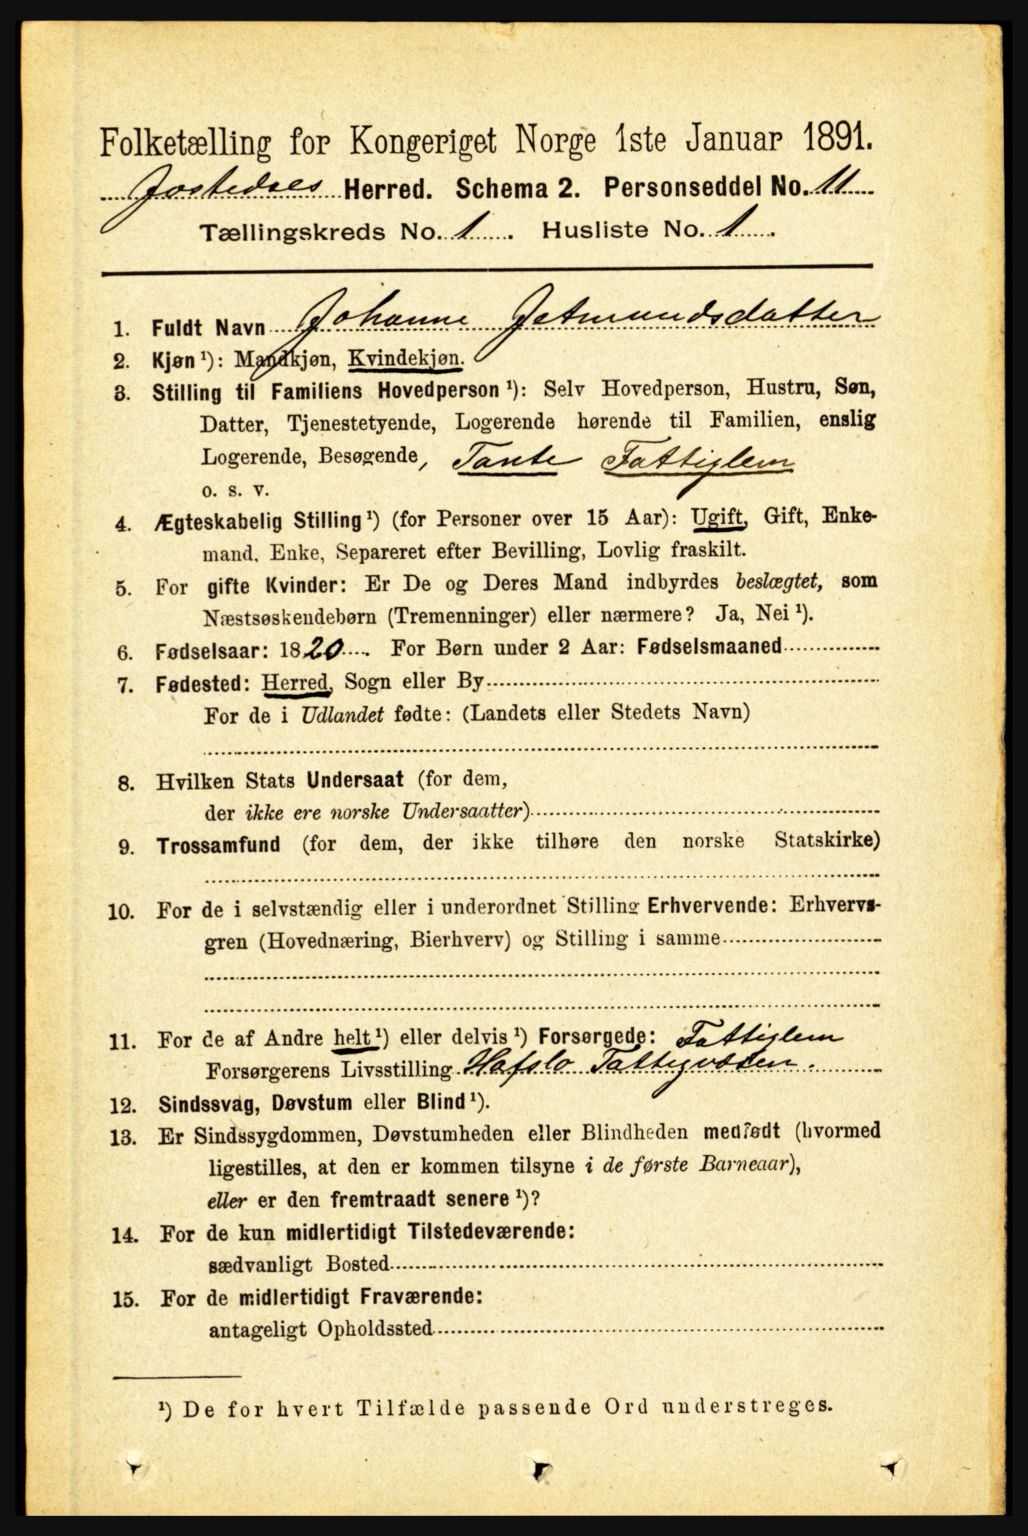 Folketælling for Kongeriget Norge 1ste Januar 1891.
Jostedals Herred. Schema 2. Personseddel No. 11
Tællingskreds No. 1. Husliste No. 1.
1. Fuldt Navn Johanne Jetmundsdatter
2. Kjøn ¹): Mandkjøn, Kvindekjøn.
3. Stilling til Familiens Hovedperson ¹): Selv Hovedperson, Hustru, Søn,
Datter, Tjenestetyende, Logerende hørende til Familien, enslig
Logerende, Besøgende, Tante Fattiglem
o. s. v.
4. Ægteskabelig Stilling ¹) (for Personer over 15 Aar): Ugift, Gift, Enke-
mand, Enke, Separeret efter Bevilling, Lovlig fraskilt.
5. For gifte Kvinder: Er De og Deres Mand indbyrdes beslægtet, som
Næstsøskendebørn (Tremenninger) eller nærmere? Ja, Nei ¹).
6. Fødselsaar: 1820. For Børn under 2 Aar: Fødselsmaaned
7. Fødested: Herred, Sogn eller By
For de i Udlandet fødte: (Landets eller Stedets Navn)
8. Hvilken Stats Undersaat (for dem,
der ikke ere norske Undersaatter)
9. Trossamfund (for dem, der ikke tilhøre den norske Statskirke)
10. For de i selvstændig eller i underordnet Stilling Erhvervende: Erhvervs-
gren (Hovednæring, Bierhverv) og Stilling i samme
11. For de af Andre helt ¹) eller delvis ¹) Forsørgede: Fattiglem
Forsørgerens Livsstilling Hafslo Fattigvæsen.
12. Sindssvag, Døvstum eller Blind ¹).
13. Er Sindssygdommen, Døvstumheden eller Blindheden medfødt (hvormed
ligestilles, at den er kommen tilsyne i de første Barneaar),
eller er den fremtraadt senere ¹)?
14. For de kun midlertidigt Tilstedeværende:
sædvanligt Bosted
15. For de midlertidigt Fraværende:
antageligt Opholdssted
¹) De for hvert Tilfælde passende Ord understreges.